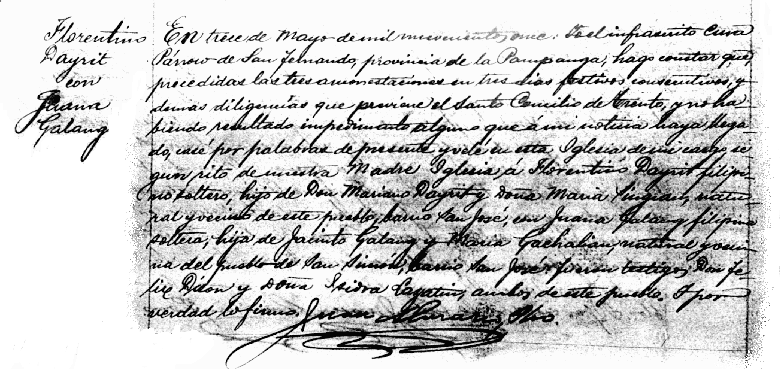 Florentino
Dayrit
con
Juana
Galang
En trece de Mayo de mil novecientos once: Yo el infrascrito Cura
Párroco de San Fernando, provincia de la Pampanga, hago constar que
precedidas las tres amonestaciones en tres dias festivos consecutivos, y
demás diligencias que previene el Santo Concilio de Trento, y no ha
biendo resultado impedimento alguno que á mi noticia haya llega
do, casé por palabras de presente y velé en esta Iglesia de mi cargo se
gun rito de nuestra Madre Iglesia á Florentino Dayrit filipi
no soltero, hijo de Don Mariano Dayrit y Doña Maria Singian, natu
ral y vecino de este pueblo, barrio San José, con Juana Galang filipina
soltera, hija de Jacinto Galang y Maria Gachalian, natural y veci
na del pueblo de San Simon, barrio San José: fueron testigos Don Fe
lix Dizon y Doña Isidra ambos de este pueblo. Y por
verdad lo firmo. Juan Pbro.